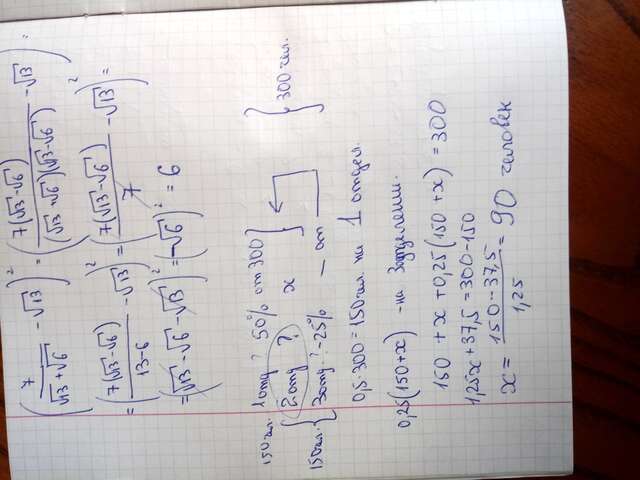 (7/(√13+√6) - √13)² = (7(√13-√6)/((√13+√6)(√13-√6)) - √13)² =
= (7(√13-√6)/(13-6) - √13)² = (7(√13-√6)/7 - √13)² =
= (√13-√6-√13)² = (-√6)² = 6
150 чел. 1 отд ? 50% от 300
2 отд ? x
150 чел. 3 отд ? - 25% - от
300 чел.
0,5·300=150 чел. на 1 отдел.
0,25(150+x) - на 3 отделении.
150 + x + 0,25(150+x) = 300
1,25x + 37,5 = 300-150
x = (150-37,5)/1,25 = 90 человек